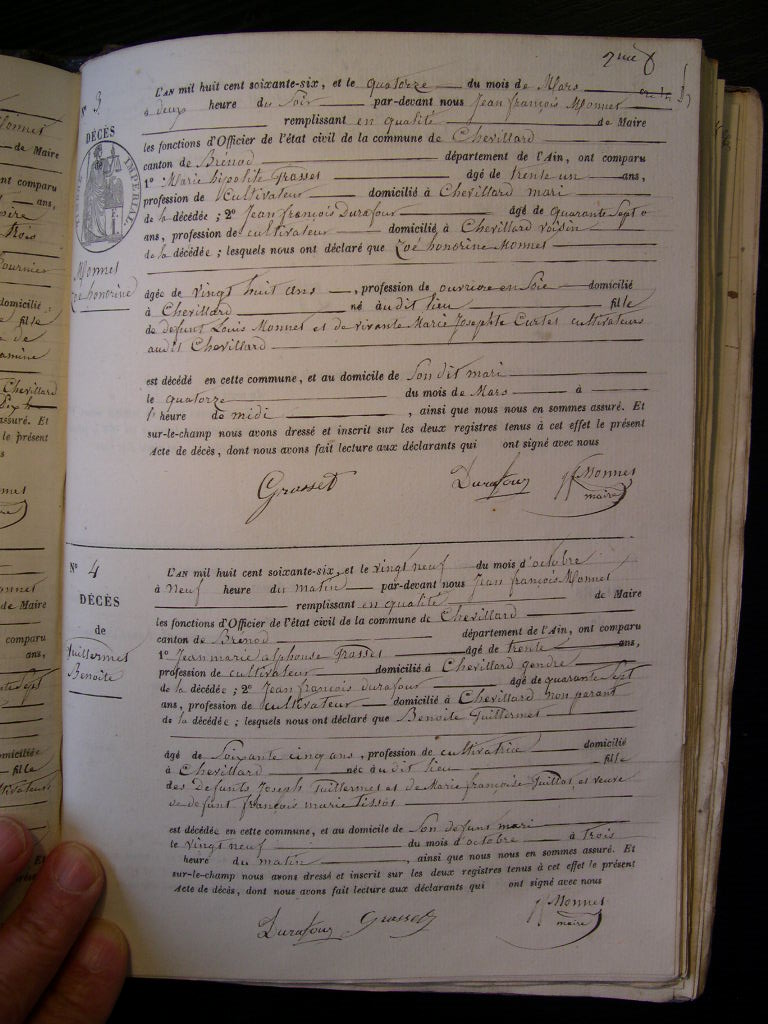 2me
N° 3
DÉCÈS
de
TIMBRE IMPÉRIAL
Monnet
Zoé honorine
L'AN mil huit cent soixante-six, et le quatorze du mois de Mars
à deux heure du Soir par-devant nous Jean françois Monnet
remplissant en qualité de Maire
les fonctions d'Officier de l'état civil de la commune de Chevillard
canton de Brenod département de l'Ain, ont comparu
1° Marie hipolite Grosset âgé de trente un ans,
profession de Cultivateur domicilié à Chevillard mari
de la décédée ; 2° Jean françois Durafour âgé de quarante Sept
ans, profession de cultivateur domicilié à Chevillard voisin
de la décédée ; lesquels nous ont déclaré que Zoé honorine Monnet
âgée de vingt huit ans, profession de ouvriere en Soie domicilié
à Chevillard né audit lieu fille
de defunt Louis Monnet et de vivante Marie Josephte Curtet cultivateurs
audit Chevillard
est décédé en cette commune, et au domicile de Son dit mari
le quatorze du mois de Mars à
l'heure de midi, ainsi que nous nous en sommes assuré. Et
sur-le-champ nous avons dressé et inscrit sur les deux registres tenus à cet effet le présent
Acte de décès, dont nous avons fait lecture aux déclarants qui ont signé avec nous
Grosset Durafour Monnet
maire
N° 4
DÉCÈS
de
Guillermet
Benoite
L'AN mil huit cent soixante-six, et le vingt neuf du mois d'octobre
à neuf heure du matin par-devant nous Jean françois Monnet
remplissant en qualité de Maire
les fonctions d'Officier de l'état civil de la commune de Chevillard
canton de Brenod département de l'Ain, ont comparu
1° Jean marie alphonse Grosset âgé de trente ans,
profession de cultivateur domicilié à Chevillard gendre
de la décédée ; 2° Jean françois durafour âgé de quarante Sept
ans, profession de cultivateur domicilié à Chevillard non parant
de la décédée ; lesquels nous ont déclaré que Benoite Guillermet
âgé de Soixante cinq ans, profession de cultivatrice domicilié
à Chevillard née audit lieu fille
des Defunts Joseph Guillermet et de Marie françoise Guillot et veuve
de defunt françois marie Tissot
est décédée en cette commune, et au domicile de Son defunt mari
le vingt neuf du mois d'octobre à trois
heure du matin, ainsi que nous nous en sommes assuré. Et
sur-le-champ nous avons dressé et inscrit sur les deux registres tenus à cet effet le présent
Acte de décès, dont nous avons fait lecture aux déclarants qui ont signé avec nous
Durafour Grosset Monnet
maire